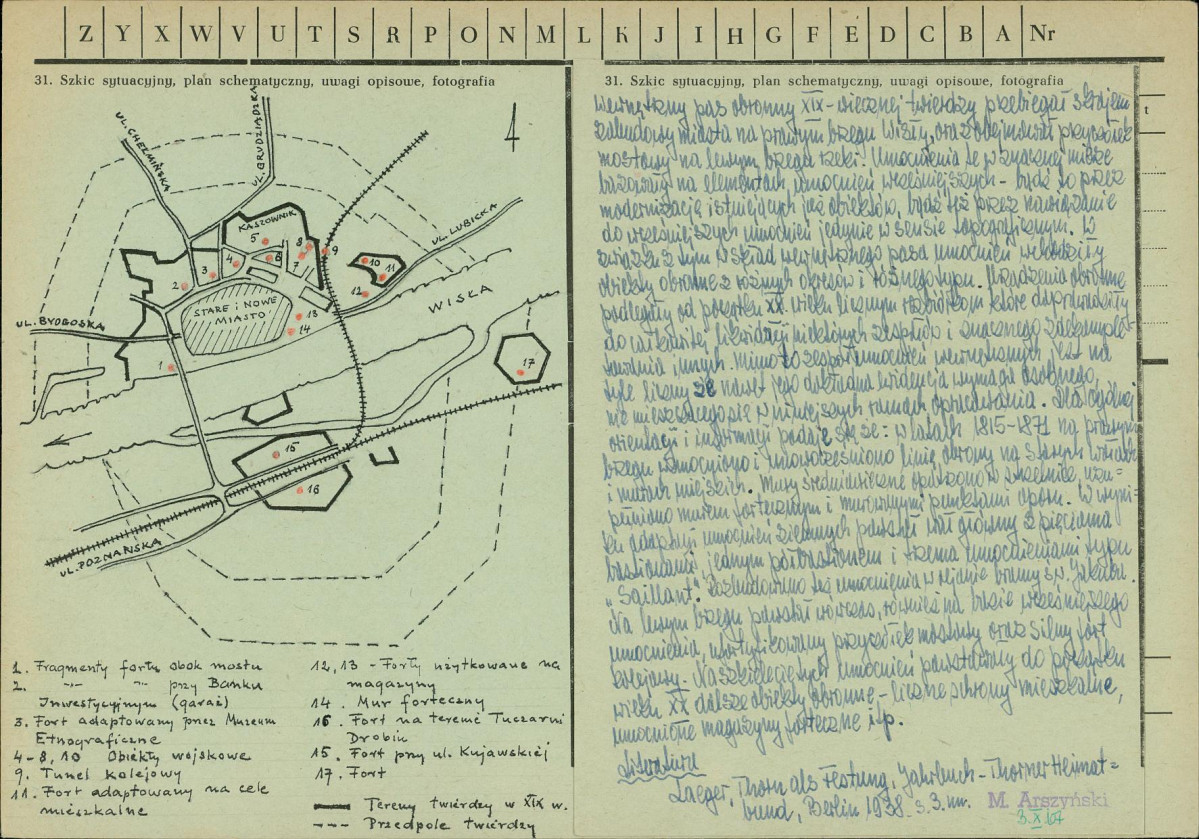 Z Y X W V U T S R P O N M L K J I H G F E D C B A Nr
31. Szkic sytuacyjny, plan schematyczny, uwagi opisowe, fotografia
UL. CHEŁMIŃSKA
UL. GRUDZIĄDZKA
KASZOWNIK
UL. LUBICKA
5
8
9
3
4
6
7
10
11
2
12
STARE i NOWE
MIASTO
13
14
WISŁA
UL. BYDGOSKA
1
17
15
16
UL. POZNAŃSKA
1. Fragmenty fortu obok mostu
2. -"- -"- przy Banku
Inwestycyjnym (garaż)
3. Fort adaptowany przez Muzeum
Etnograficzne
4-8, 10 Obiekty wojskowe
9. Tunel kolejowy
11. Fort adaptowany na cele
mieszkalne
12, 13 - Forty użytkowane na
magazyny
14. Mur forteczny
16. Fort na terenie Tuczarni
Drobiu
15. Fort przy ul. Kujawskiej
17. Fort
Tereny twierdzy w XIX w.
Przedpole twierdzy
31. Szkic sytuacyjny, plan schematyczny, uwagi opisowe, fotografia
t
Wewnętrzny pas obronny XIX-wiecznej twierdzy przebiegał skrajem
zabudowy miasta na prawym brzegu Wisły, oraz obejmował przyczółek
mostowy na lewym brzegu rzeki. Umocnienia te w znacznej mierze
bazowały na elementach umocnień wcześniejszych - bądź to przez
modernizację istniejących już obiektów, bądź też przez nawiązanie
do wcześniejszych umocnień jedynie w sensie topograficznym. W
związku z tym w skład wewnętrznego pasa umocnień wchodziły
obiekty obronne z różnych okresów i różnego typu. Urządzenia obronne
podległy od początku XX wieku licznym rozbiórkom które doprowadziły
do całkowitej likwidacji niektórych zespołów i znacznego
innych. Mimo to zespół umocnień wewnętrznych jest na
tyle liczny że nawet jego dokładna ewidencja wymaga osobnego,
nie mieszczącego się w niniejszych ramach opracowania. Dla ogólnej
orientacji i informacji podaje się że: w latach 1815-1871 na prawym
brzegu wzmocniono i unowocześniono linię obrony na starych
i murach miejskich. Mury średniowieczne opatrzono w strzelnice, uzu-
pełniono murem fortecznym i murowanymi punktami oporu. W wyni-
ku adaptacji umocnień ziemnych powstał wał główny z pięcioma
bastionami, jednym półbastionem i trzema umocnieniami typu
"Saillant". Rozbudowano też umocnienia w rejonie bramy św. Jakuba.
Na lewym brzegu powstał wówczas, również na bazie wcześniejszego
umocnienia, ufortyfikowany przyczółek mostowy oraz silny fort
kolejowy. Na szkielecie tych umocnień powstawały do początku
wieku XX dalsze obiekty obronne - liczne schrony mieszkalne,
umocnione magazyny forteczne itp.
Literatura
Jaeger, Thorn als Festung, Jahrbuch - Thorner Heimat-
bund, Berlin 1938 s. 3. nn.
M. Arszyński
3.X.67